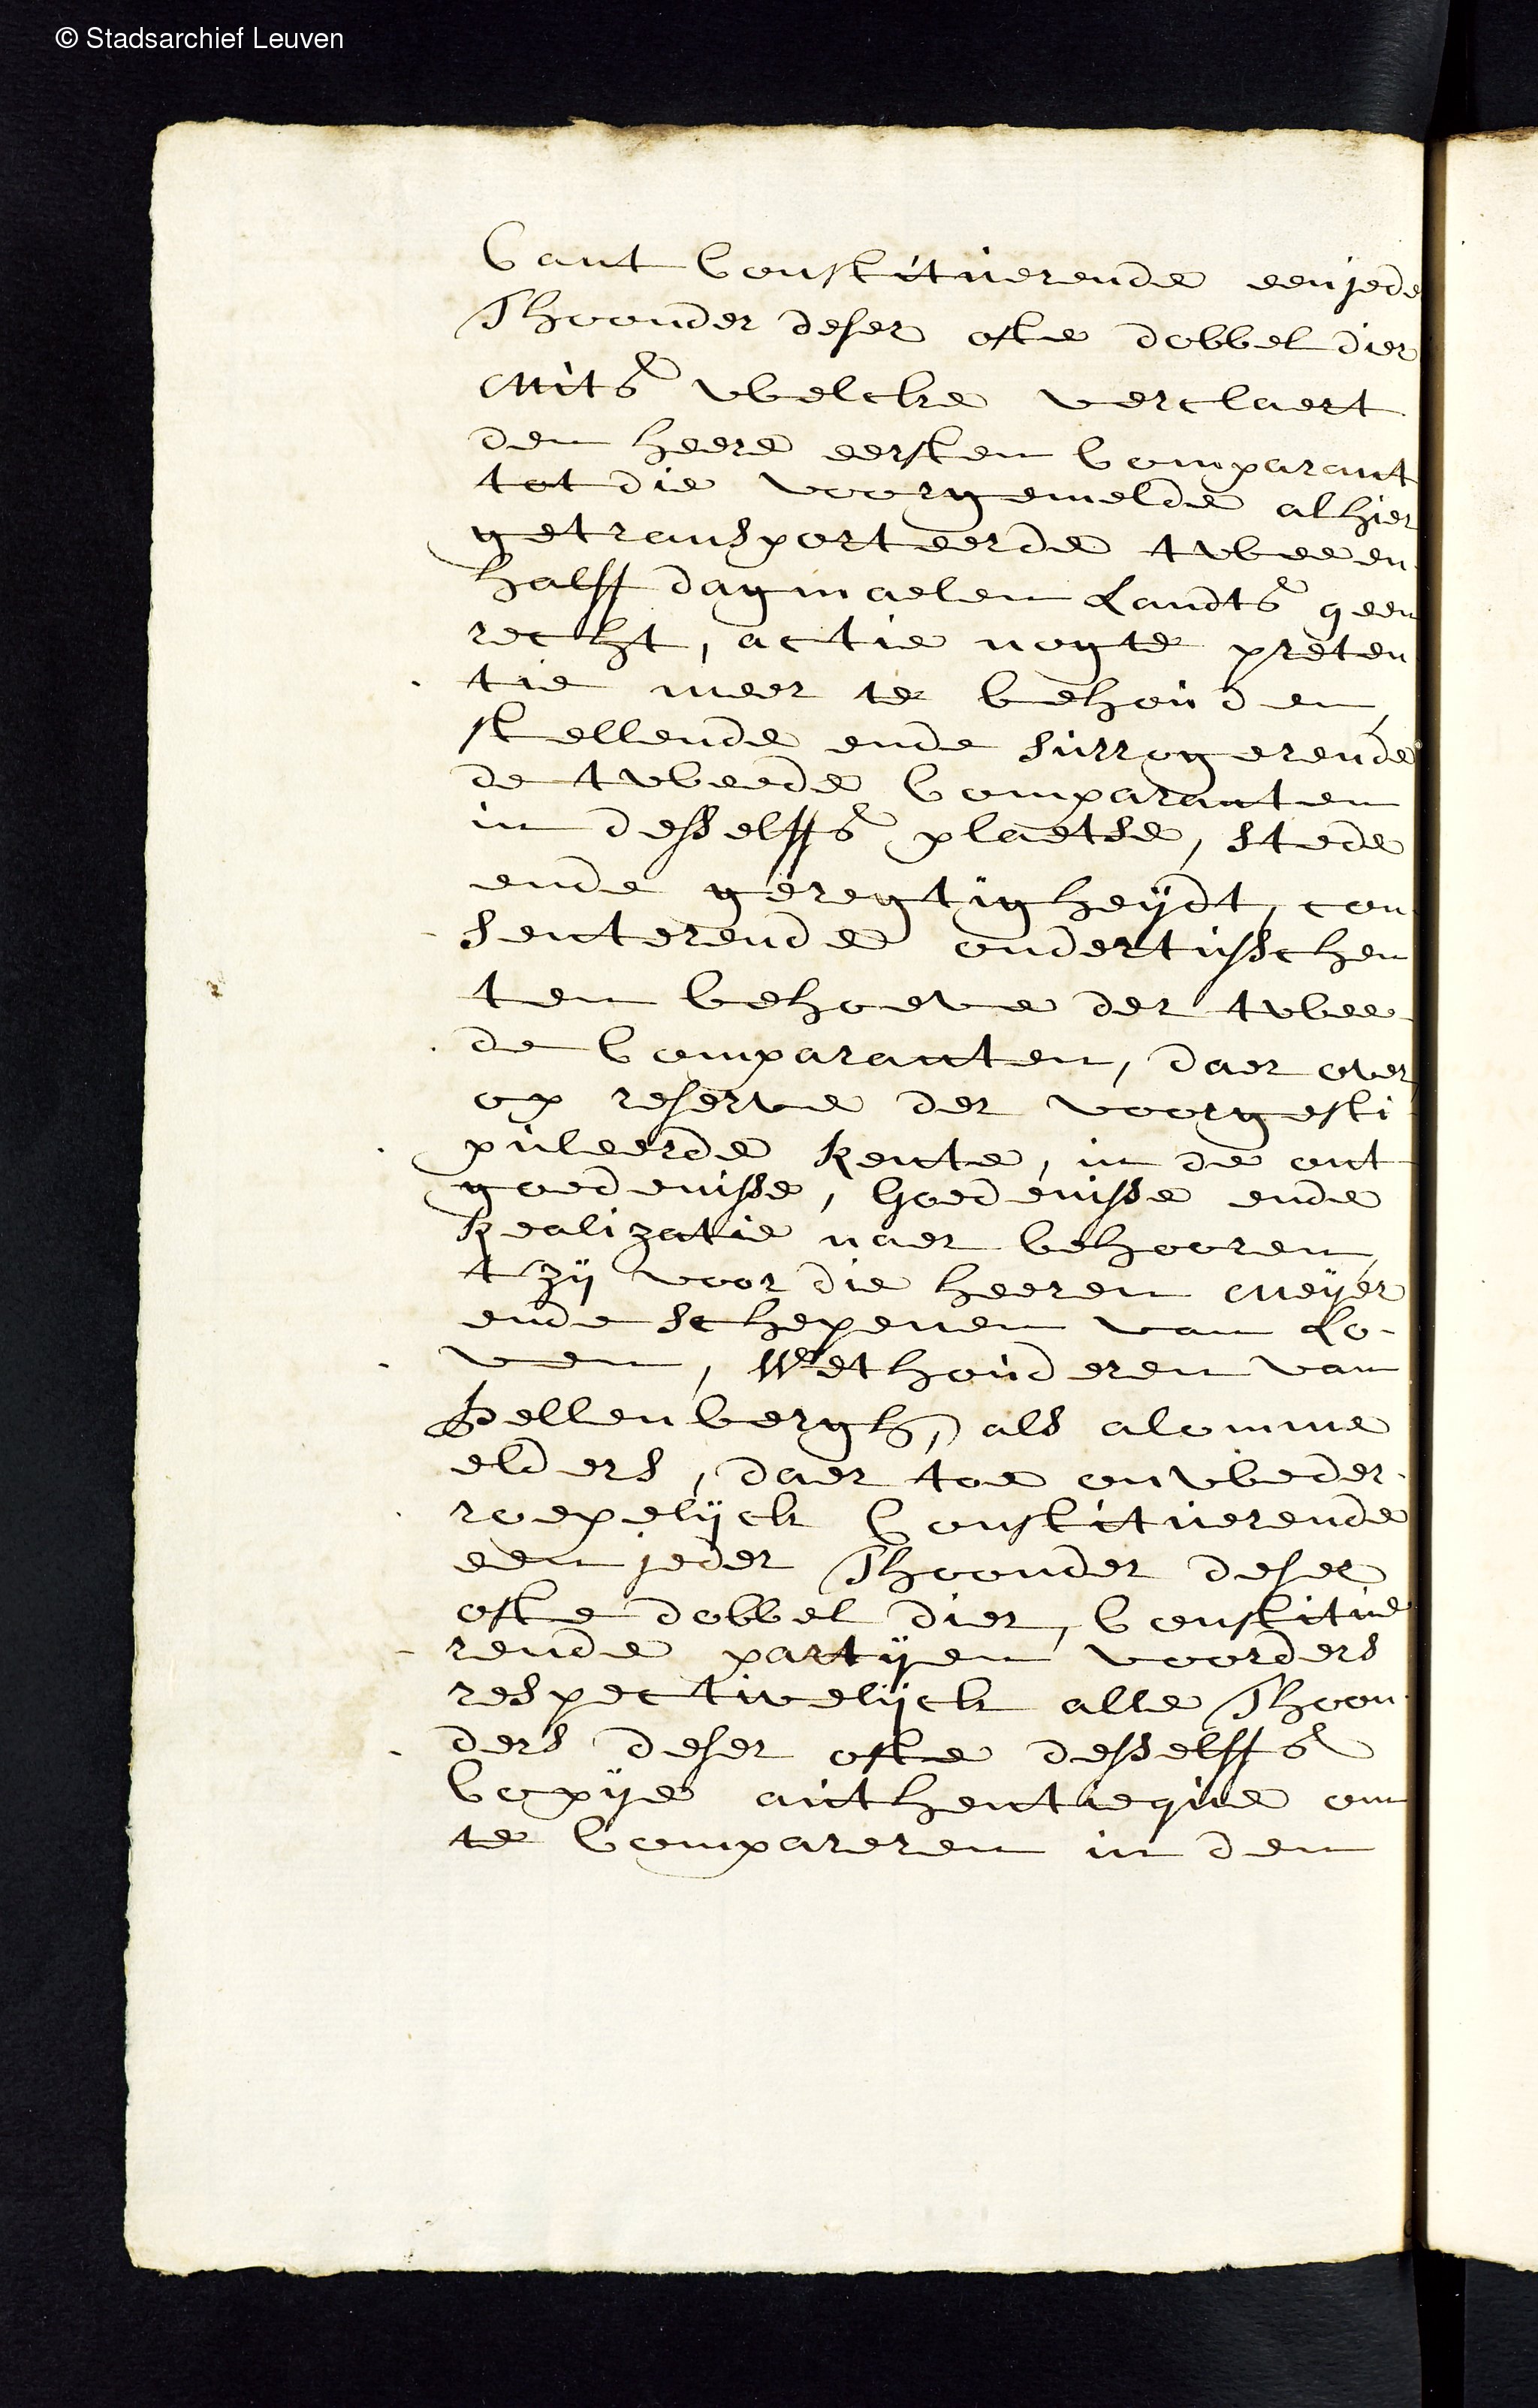 © Stadsarchief Leuven
Cant Constituerende een jede
Thoonder deser ofte dobbel dier
Mits welcke verclaert
den heere eersten Comparant
tot die voorgemelde alhier
getransporteerde twee en
halff dagmaelen Landts geen
recht, actie nogte preten
tie meer te behouden,
stellende ende surrogerende
de tweede Comparanten
in desselffs plaetse, stede
ende geregtigheijdt, con
senterende ondertusschen
ten behoeve der twee
de Comparanten, daer over
op reserve der voorgesti
puleerde Rente, in de ont
goedenisse, Goedenisse ende
Realizatie naer behooren,
t zij voor die heeren Meijer
ende Schepenen van Lo-
ven, Wethouderen van
Pellenbergh, als alomme
elders, daer toe onweder
roepelijck Constituerende
een jeder Thoonder deser
ofte dobbel dier, Constitue
rende partijen voorders
respectivelijck alle Thoon
ders deser ofte desselffs
Copije authentieque om
te Compareren in den